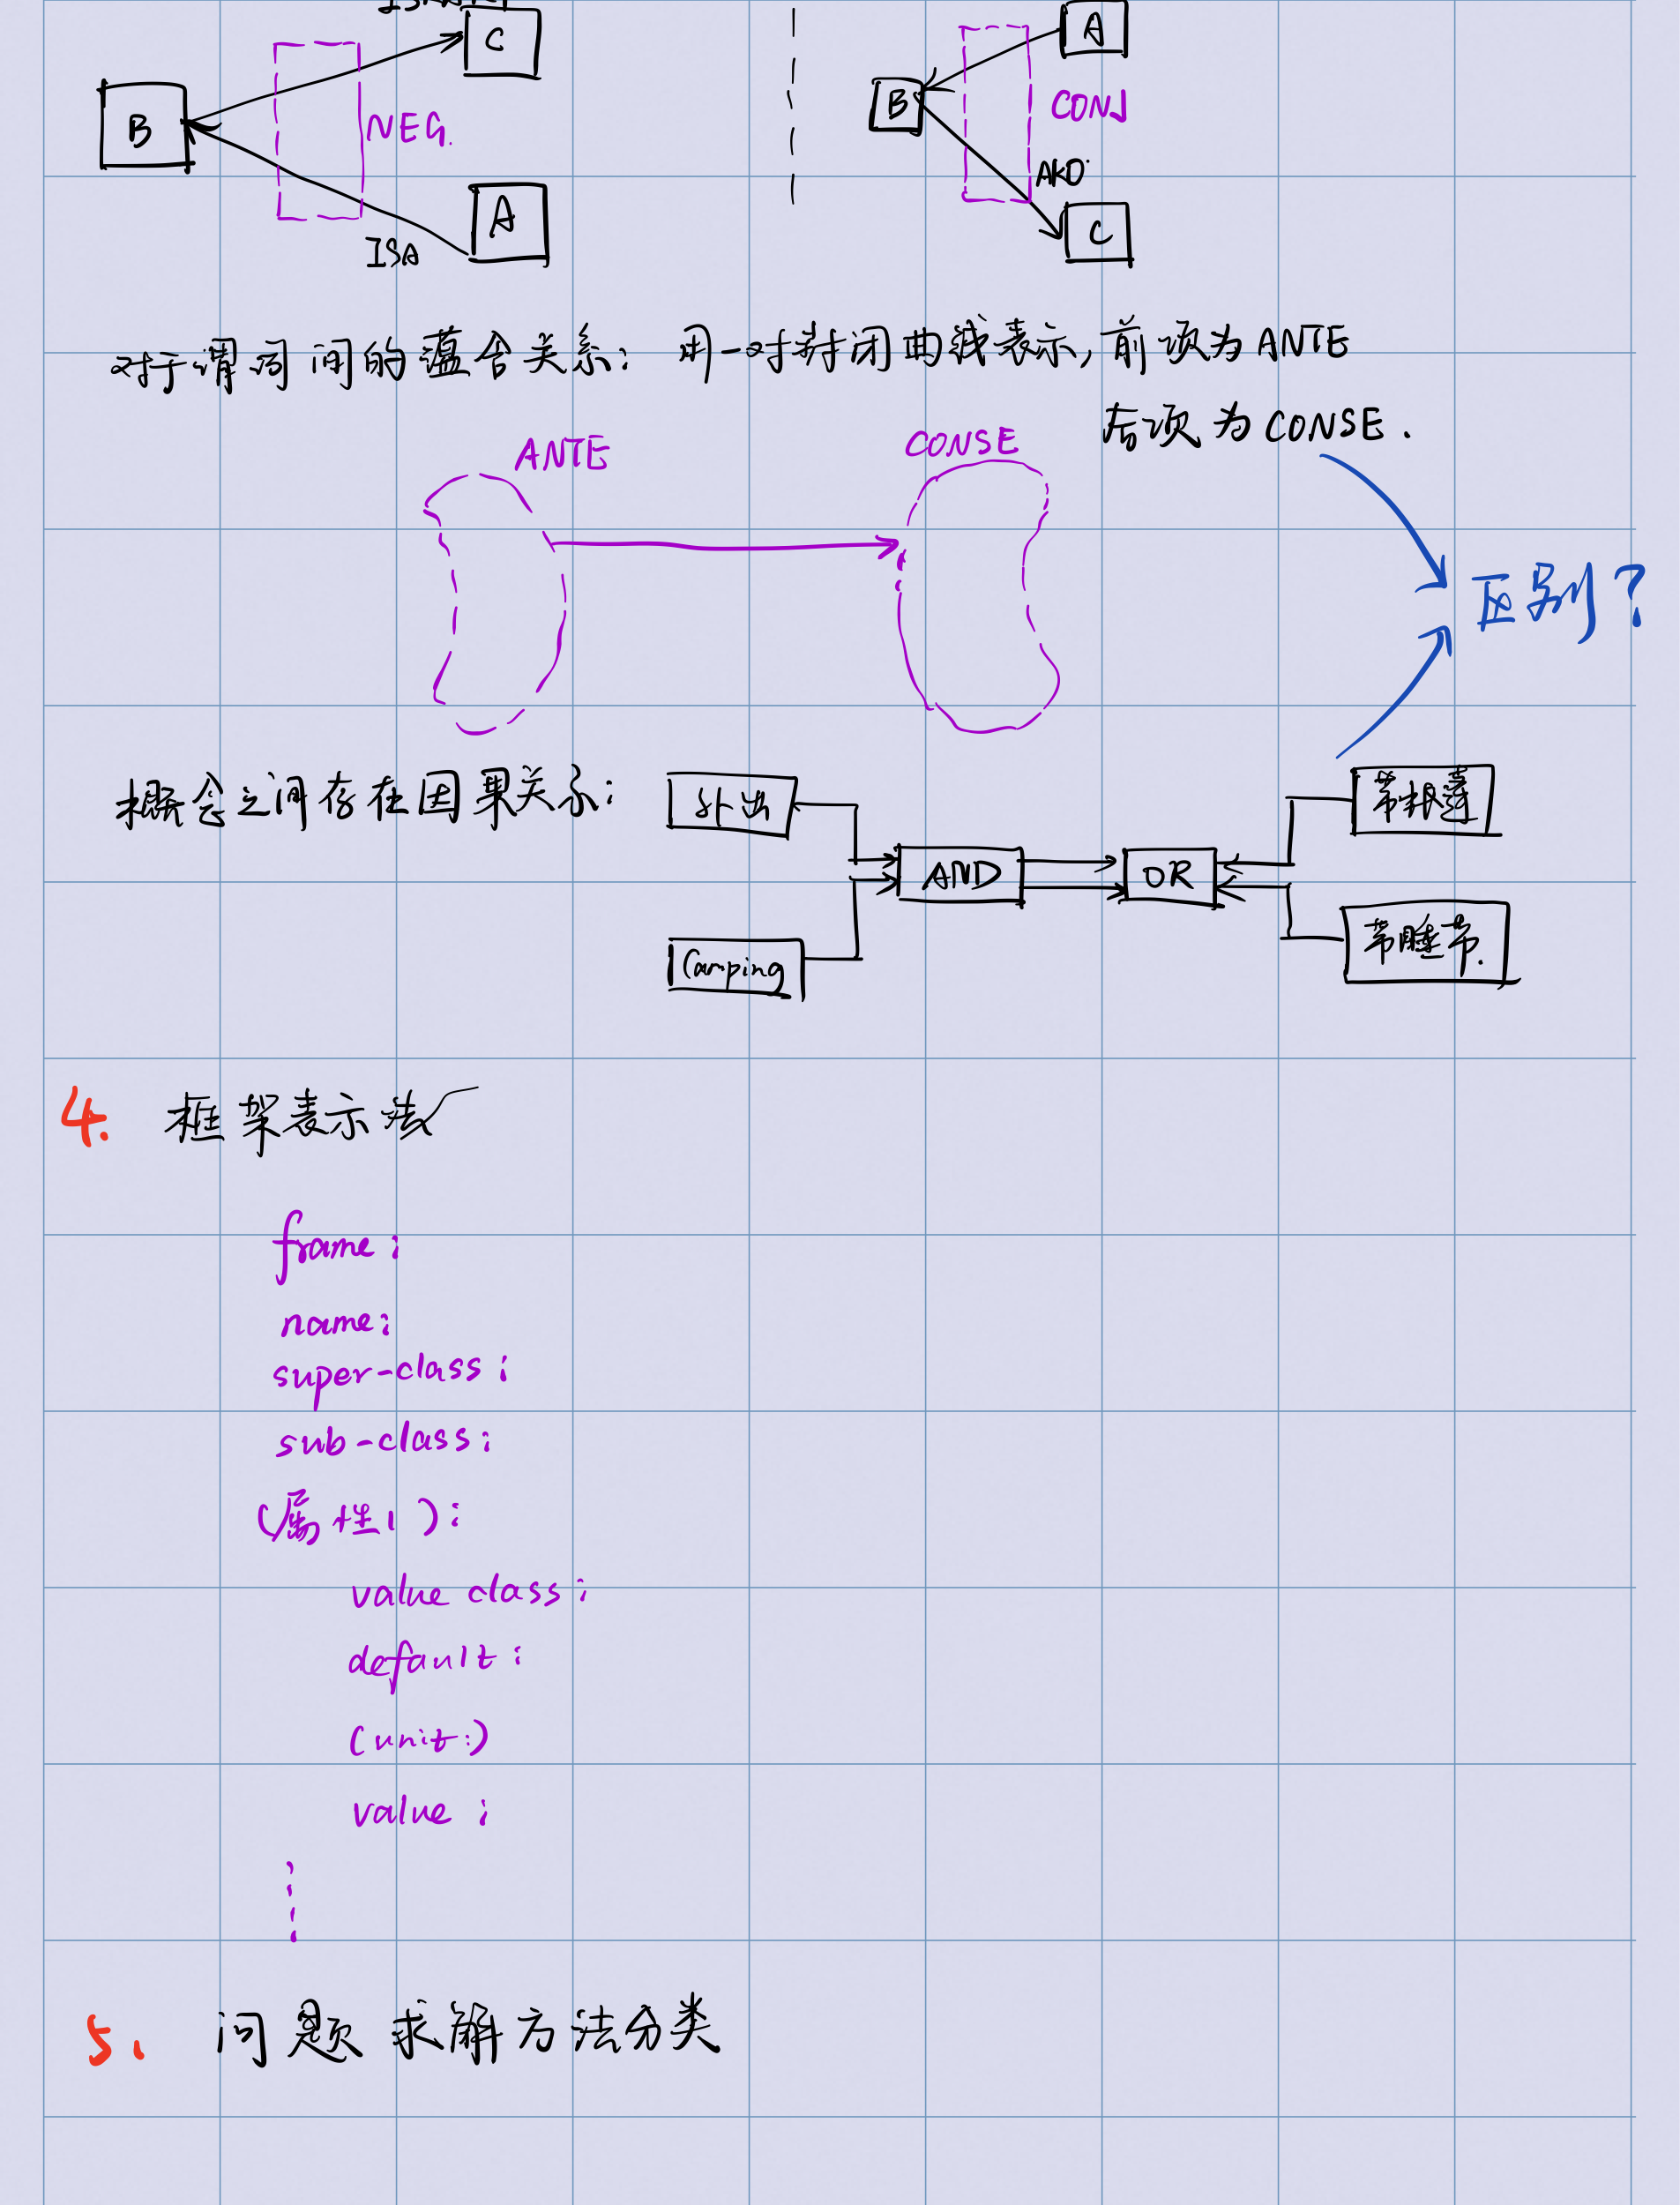 C
A
B
NEG.
B
CONJ
A
AKO
C
ISA
对于谓词间的蕴含关系: 用一对封闭曲线表示,前项为ANTE
后项为CONSE.
ANTE
CONSE
区别?
概念之间存在因果关系:
外出
带帐篷
AND
OR
Camping
带睡书.
4. 框架表示法
frame:
name:
super-class:
sub-class:
(属性1):
value class:
default:
(unit:)
value:
5. 问题求解方法分类